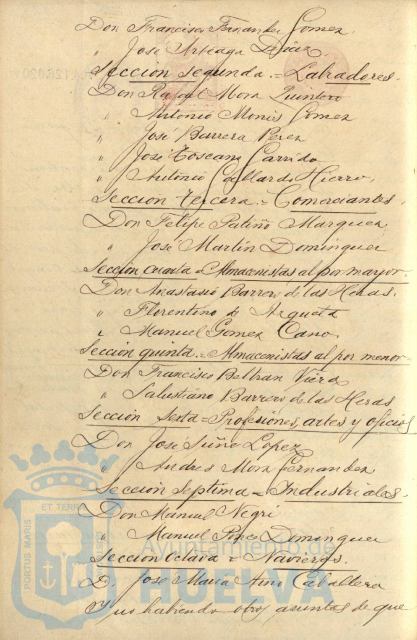 Don Francisco Fernandez Gomez.
" José Arteaga
Sección segunda.=Labradores.
Don Rafael Mora Quintero
" Antonio Monis Gomez
" José Barrera Perez
" José Toscano Garrido
" Antonio Gallardo Hierro.
Sección tercera.=Comerciantes.
Don Felipe Patiño Marquez
" José Martín Dominguez
Sección cuarta=Almacenistas al por mayor.
Don Anastasio Barrero de las Heras.
" Florentino de Azqueta
" Manuel Gomez Cano.
Sección quinta.=Almacenistas al por menor
Don Francisco Beltran Viera
" Salustiano Barrero de las Heras
Sección Sexta=Profesiones, artes y oficios
Don José Lopez
" Andres Mora Fernandez
Sección Septima=Industriales.
Don Manuel Negri
" Manuel Ponce Dominguez
Sección Octava=Navieros.
D. José Maria Caballero
Y no habiendo otros asuntos de que
PORTUS MARIS ET TERRÆ
Ayuntamiento de
HUELVA